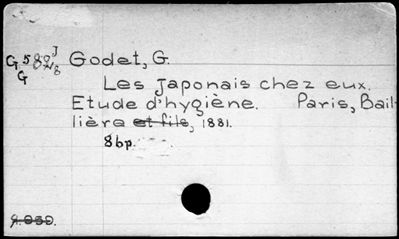 Godet, G.
Les Japonais chez eux.
Etude d'hygiène. Paris, Bail-
lière et fils, 1881.
86p.